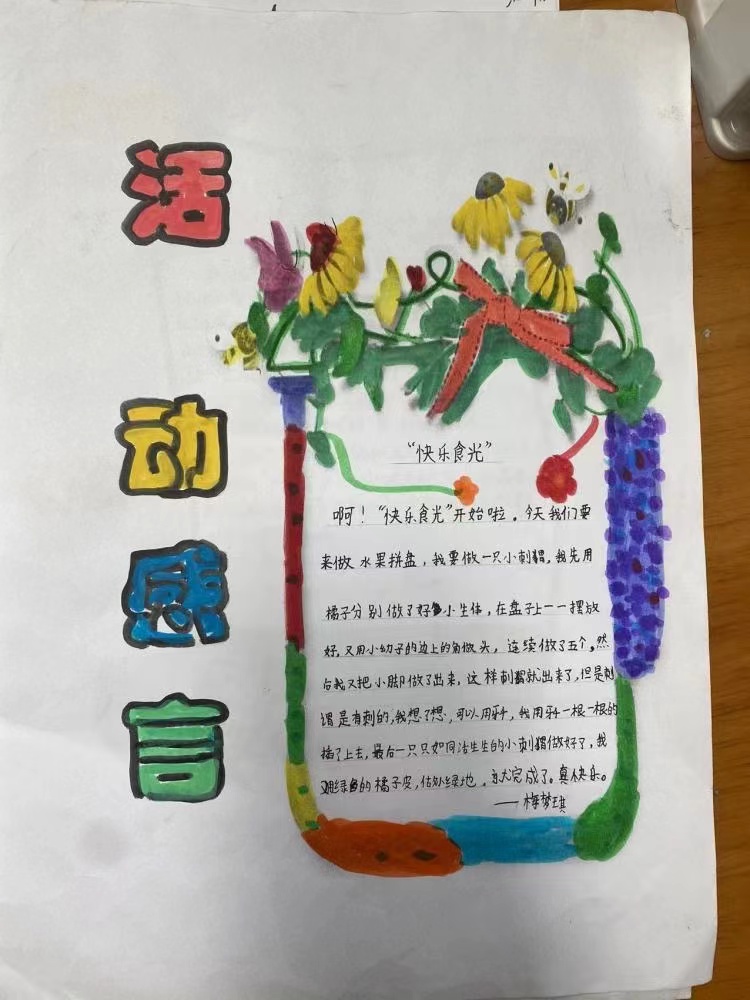 活动感言
“快乐食光”
啊！“快乐食光”开始啦。今天我们要
来做水果拼盘，我要做一只小刺猬，我先用
橘子分别做了好多小生体，在盘子上一一摆放
好，又用小幼子的边上的角做头，连续做了五个，然
后我又把小脚做了出来，这样刺猬就出来了，但是刺
猬是有刺的，我想了想，可以用牙，我用牙一根一根的
插了上去，最后一只只如同活生生的小刺猬做好了，我
用绿色的橘子皮，估处绿地，完成了。真快乐。
——梅梦琪